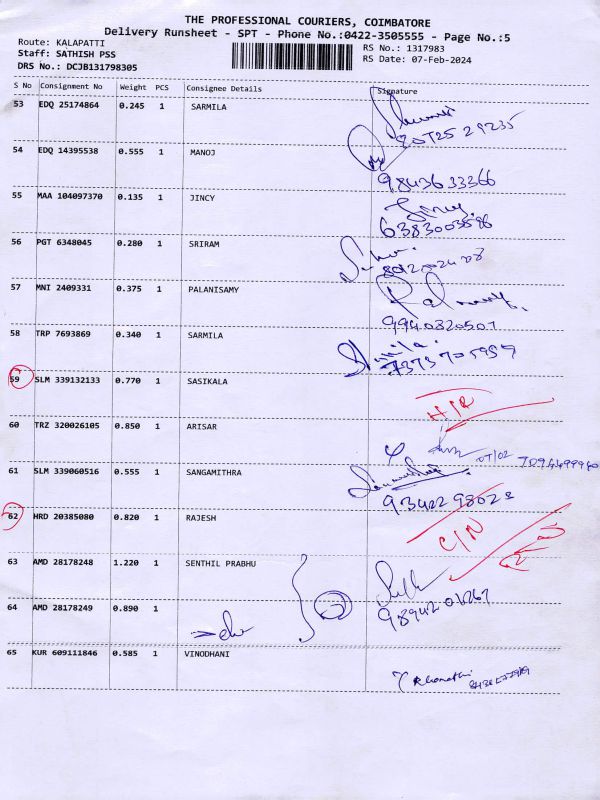 THE PROFESSIONAL COURIERS, COIMBATORE
Delivery Runsheet - SPT - Phone No.:0422-3505555 - Page No.:5
Route: KALAPATTI
RS No.: 1317983
Staff: SATHISH PSS
RS Date: 07-Feb-2024
DRS No.: DCJB131798305
S No Consignment No Weight PCS Consignee Details Signature
53 EDQ 25174864 0.245 1 SARMILA
54 EDQ 14395538 0.555 1 MANOJ
9843633366
55 MAA 104097370 0.135 1 JINCY
Jincy
56 PGT 6348045 0.280 1 SRIRAM
57 MNI 2409331 0.375 1 PALANISAMY
9940320507
58 TRP 7693869 0.340 1 SARMILA
7373705959
59 SLM 339132133 0.770 1 SASIKALA
60 TRZ 320026105 0.850 1 ARISAR
07/02 7094499940
61 SLM 339060516 0.555 1 SANGAMITHRA
62 HRD 20385080 0.820 1 RAJESH
C/N
63 AMD 28178248 1.220 1 SENTHIL PRABHU
9894201267
64 AMD 28178249 0.890 1
65 KUR 609111846 0.585 1 VINODHANI